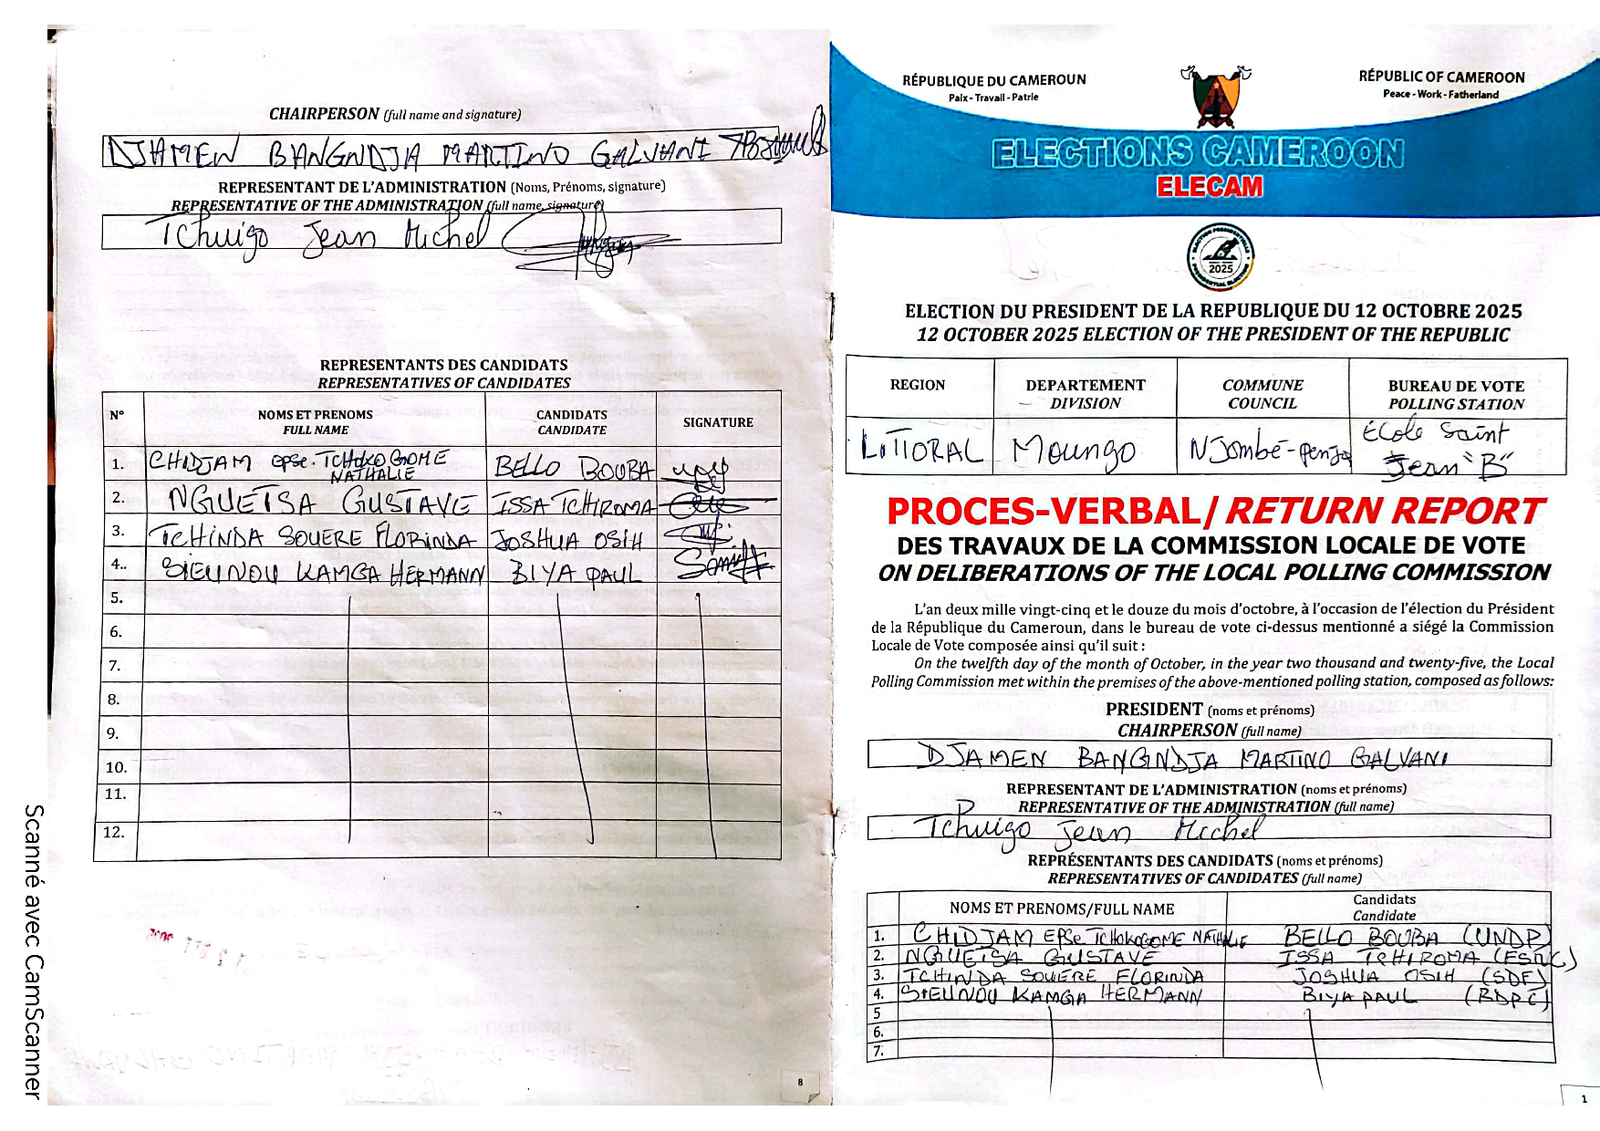 CHAIRPERSON (full name and signature)
DJAMEN BANGNDJA MARTINO GALVANI
REPRESENTANT DE L'ADMINISTRATION (Noms, Prénoms, signature)
REPRESENTATIVE OF THE ADMINISTRATION (full name, signature)
Tchuigo Jean Michel
REPRESENTANTS DES CANDIDATS
REPRESENTATIVES OF CANDIDATES
N° NOMS ET PRENOMS CANDIDATS SIGNATURE
FULL NAME CANDIDATE
1. CHIDJAM epse. TCHOKOGOME NATHALIE BELLO BOUBA
2. NGUETSA GUSTAVE ISSA TCHIROMA
3. TCHINDA SOUERE FLORINDA JOSHUA OSIH
4.. SIEUNOU KAMGA HERMANN BIYA PAUL
5.
6.
7.
8.
9.
10.
11.
12.
8
Scanné avec CamScanner
RÉPUBLIQUE DU CAMEROUN
Paix - Travail - Patrie
RÉPUBLIC OF CAMEROON
Peace - Work - Fatherland
ELECTIONS CAMEROON
ELECAM
ELECTION PRESIDENTIELLE
2025
PRESIDENTIAL ELECTION
ELECTION DU PRESIDENT DE LA REPUBLIQUE DU 12 OCTOBRE 2025
12 OCTOBER 2025 ELECTION OF THE PRESIDENT OF THE REPUBLIC
REGION DEPARTEMENT COMMUNE BUREAU DE VOTE
DIVISION COUNCIL POLLING STATION
LITTORAL Moungo Njombé-penja École Saint Jean "B"
PROCES-VERBAL/ RETURN REPORT
DES TRAVAUX DE LA COMMISSION LOCALE DE VOTE
ON DELIBERATIONS OF THE LOCAL POLLING COMMISSION
L'an deux mille vingt-cinq et le douze du mois d'octobre, à l'occasion de l'élection du Président
de la République du Cameroun, dans le bureau de vote ci-dessus mentionné a siégé la Commission
Locale de Vote composée ainsi qu'il suit :
On the twelfth day of the month of October, in the year two thousand and twenty-five, the Local
Polling Commission met within the premises of the above-mentioned polling station, composed as follows:
PRESIDENT (noms et prénoms)
CHAIRPERSON (full name)
DJAMEN BANGNDJA MARTINO GALVANI
REPRESENTANT DE L'ADMINISTRATION (noms et prénoms)
REPRESENTATIVE OF THE ADMINISTRATION (full name)
Tchuigo Jean Michel
REPRÉSENTANTS DES CANDIDATS (noms et prénoms)
REPRESENTATIVES OF CANDIDATES (full name)
NOMS ET PRENOMS/FULL NAME Candidats
Candidate
1. CHIDJAM Epse TCHOKOGOME NATHALIE BELLO BOUBA (UNDP)
2. NGUETSA GUSTAVE ISSA TCHIROMA (FSNC)
3. TCHINDA SOUERE FLORINDA JOSHUA OSIH (SDF)
4. SIEUNOU KAMGA HERMANN BIYA PAUL (RDPC)
5
6.
7.
1